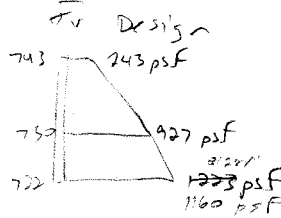 σ̄v Design
743 243 psf
730 927 psf
1223 psf
722 1160 psf